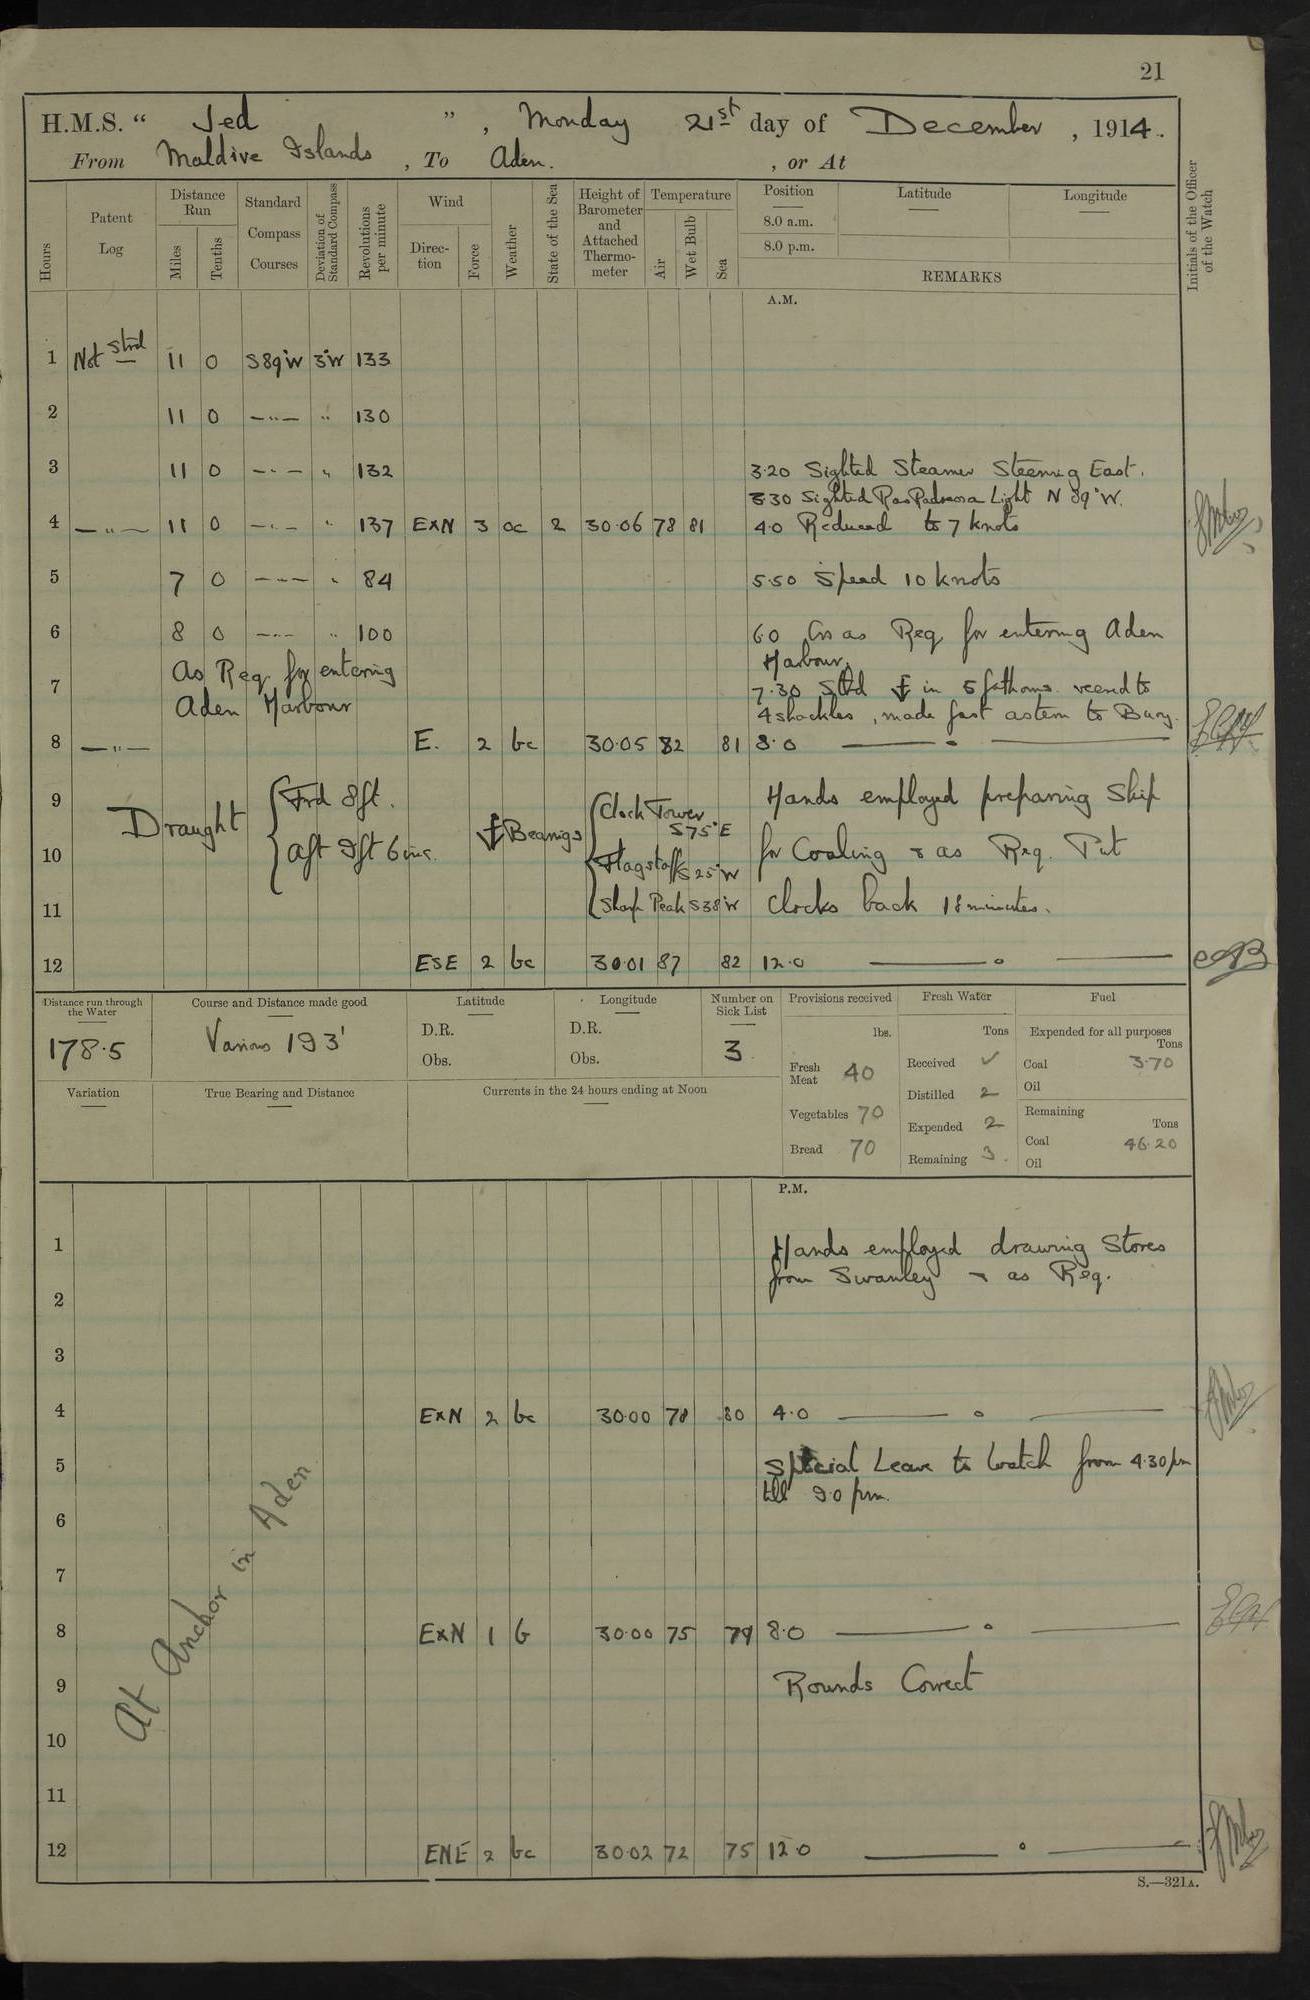 21
H.M.S. “ Jed ” , Monday 21st day of December , 1914.
From Maldive Islands , To Aden. , or At
Hours
Patent Log
Distance Run
Miles
Tenths
Standard Compass Courses
Deviation of Standard Compass
Revolutions per minute
Wind
Direction
Force
Weather
State of the Sea
Height of Barometer and Attached Thermometer
Temperature
Air
Wet Bulb
Sea
Position
8.0 a.m.
8.0 p.m.
Latitude
Longitude
REMARKS
Initials of the Officer of the Watch
A.M.
1 Not Strd 11 0 S89°W 3°W 133
2 11 0 —〃— 〃 130
3 11 0 —〃— 〃 132 3.20 Sighted Steamer Steering East.
3.30 Sighted Ras Light N 89°W.
4 —〃— 11 0 —〃— 〃 137 ExN 3 oc 2 30.06 78 81 4.0 Reduced to 7 knots
5 7 0 —〃— 〃 84 5.50 Speed 10 knots
6 8 0 —〃— 〃 100 6.0 Cos as Req for entering Aden
Harbour.
As Req for entering
7 7.30 in 5 fathoms. veered to
Aden Harbour
4 shackles, made fast astern to Buoy.
8 —〃— E. 2 bc 30.05 82 81 8.0 ——— 〃 ———
9 Draught { Frd 8ft. Hands employed preparing Ship
Clock Tower S75°E
10 aft 9ft 6ins. ⚓ Bearings for Coaling & as Req. Put
Flagstaff S25°W
11 Sharp Peak S38°W Clocks back 18 minutes.
12 ESE 2 bc 30.01 87 82 12.0 ——— 〃 ———
Distance run through the Water
178.5
Course and Distance made good
Various 193'
Latitude
D.R.
Obs.
Longitude
D.R.
Obs.
Number on Sick List
3
Provisions received
lbs.
Fresh Meat 40
Vegetables 70
Bread 70
Fresh Water
Tons
Received ✓
Distilled 2
Expended 2
Remaining 3.
Fuel
Expended for all purposes
Tons
Coal 3.70
Oil
Remaining
Tons
Coal 46.20
Oil
Variation
True Bearing and Distance
Currents in the 24 hours ending at Noon
P.M.
1 Hands employed drawing Stores
from Swanley & as Req.
2
3
4 ExN 2 bc 30.00 78 80 4.0 ——— 〃 ———
5 Special Leave to Watch from 4.30 pm
till 9.0 pm.
6
7
8 ExN 1 b 30.00 75 79 8.0 ——— 〃 ———
9 Rounds Correct
10
11
12 ENE 2 bc 30.02 72 75 12.0 ——— 〃 ———
At Anchor in Aden
S.—321A.